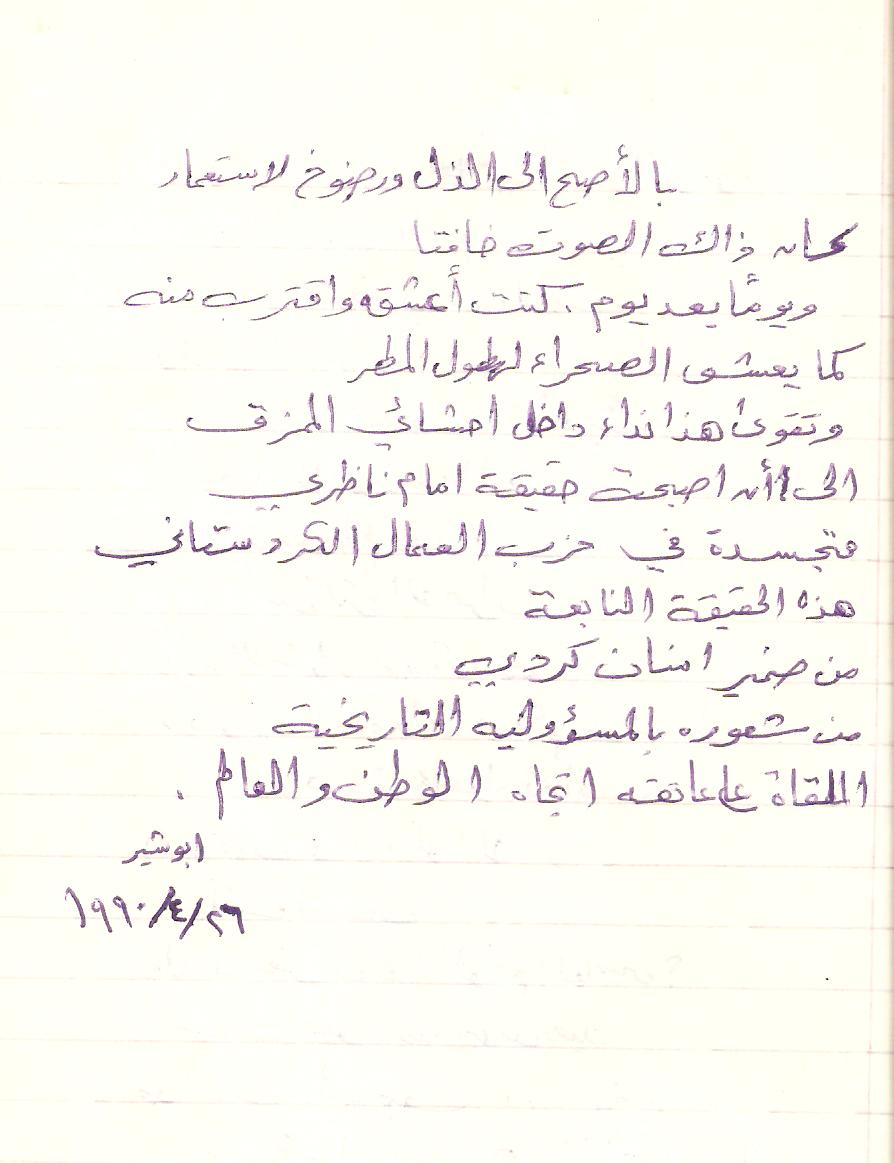 بالأصح الى الذل ورضوخ لاستعمار
كان ذاك الصوت خافتا
ويوماً بعد يوم . كنت أعشقه واقترب منه
كما يعشق الصحراء لهطول المطر
وتقوى هذا نداء داخل احشائي الممزق
الى أن اصبحت حقيقة امام ناظري
متجسدة في حزب العمال الكردستاني
هذه الحقيقة النابعة
من ضمير انسان كردي
من شعوره بالمسؤوليه التاريخية
الملقاة على عاتقه اتجاه الوطن والعالم .
ابوشير
٢٦/٤/١٩٩٠